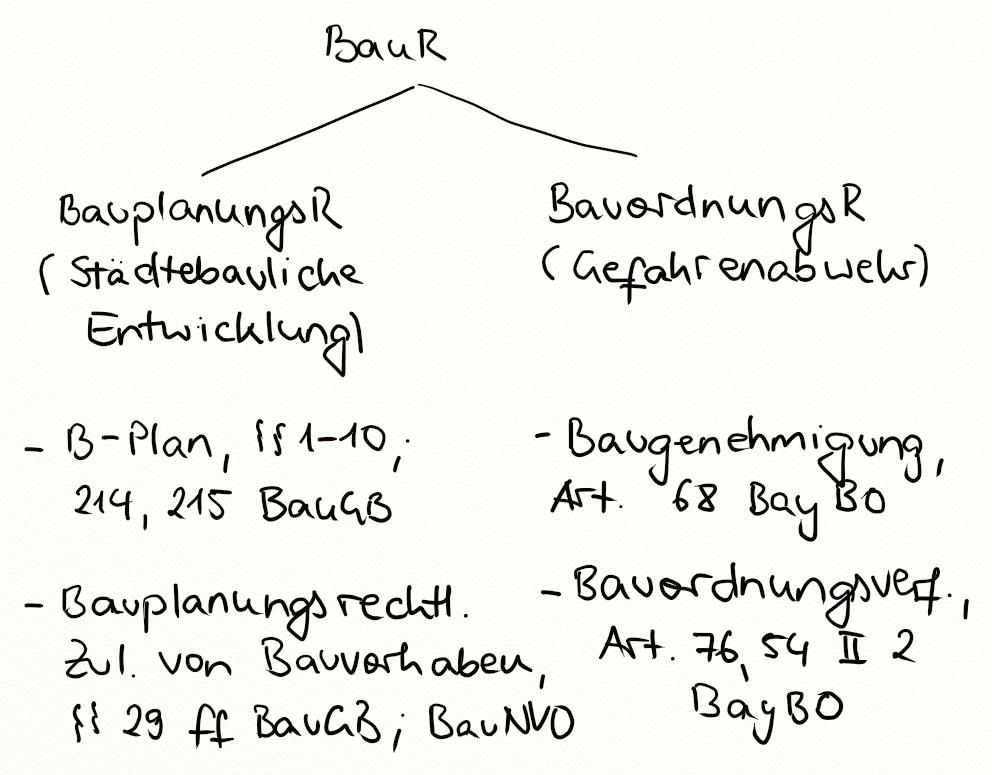 BauR
BauplanungsR
(Städtebauliche
Entwicklung)
- B-Plan, §§ 1-10;
214, 215 BauGB
- Bauplanungsrechtl.
Zul. von Bauvorhaben,
§§ 29 ff BauGB; BauNVO
BauordnungsR
(Gefahrenabwehr)
- Baugenehmigung,
Art. 68 BayBO
- Bauordnungsverf.,
Art. 76, 54 II 2
BayBO